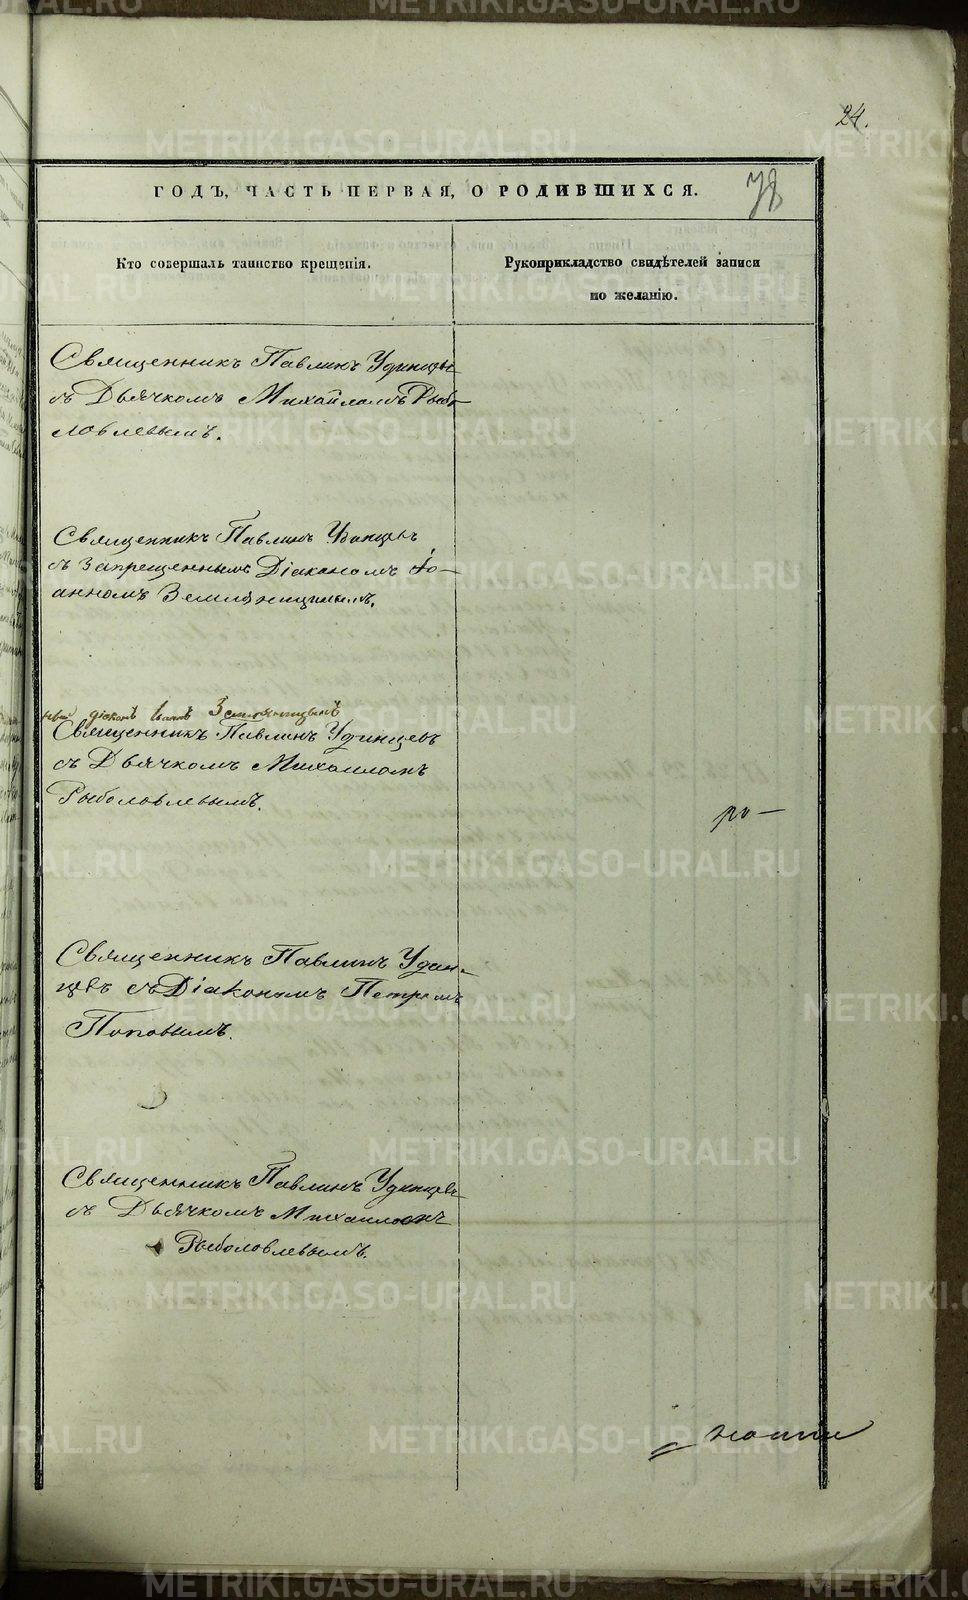 24.
ГОДЪ, ЧАСТЬ ПЕРВАЯ, О РОДИВШИХСЯ.
78
Кто совершалъ таинство крещенія.
Рукоприкладство свидѣтелей записи
по желанію.
Священникъ Павлинъ Удинцевъ
съ Дьячкомъ Михайломъ Рыбо-
ловлевымъ.
Священникъ Павлинъ Удинцевъ
съ Запрещеннымъ Діакономъ Іо-
анномъ Земляницынымъ.
діаконъ Іоаннъ Земляницынъ
Священникъ Павлинъ Удинцевъ
съ Дьячкомъ Михаиломъ
Рыболовлевымъ.
ро-
Священникъ Павлинъ Удин-
цевъ съ Діакономъ Петромъ
Поповымъ.
Священникъ Павлинъ Удинцевъ
съ Дьячкомъ Михаиломъ
Рыболовлевымъ.
METRIKI.GASO-URAL.RU